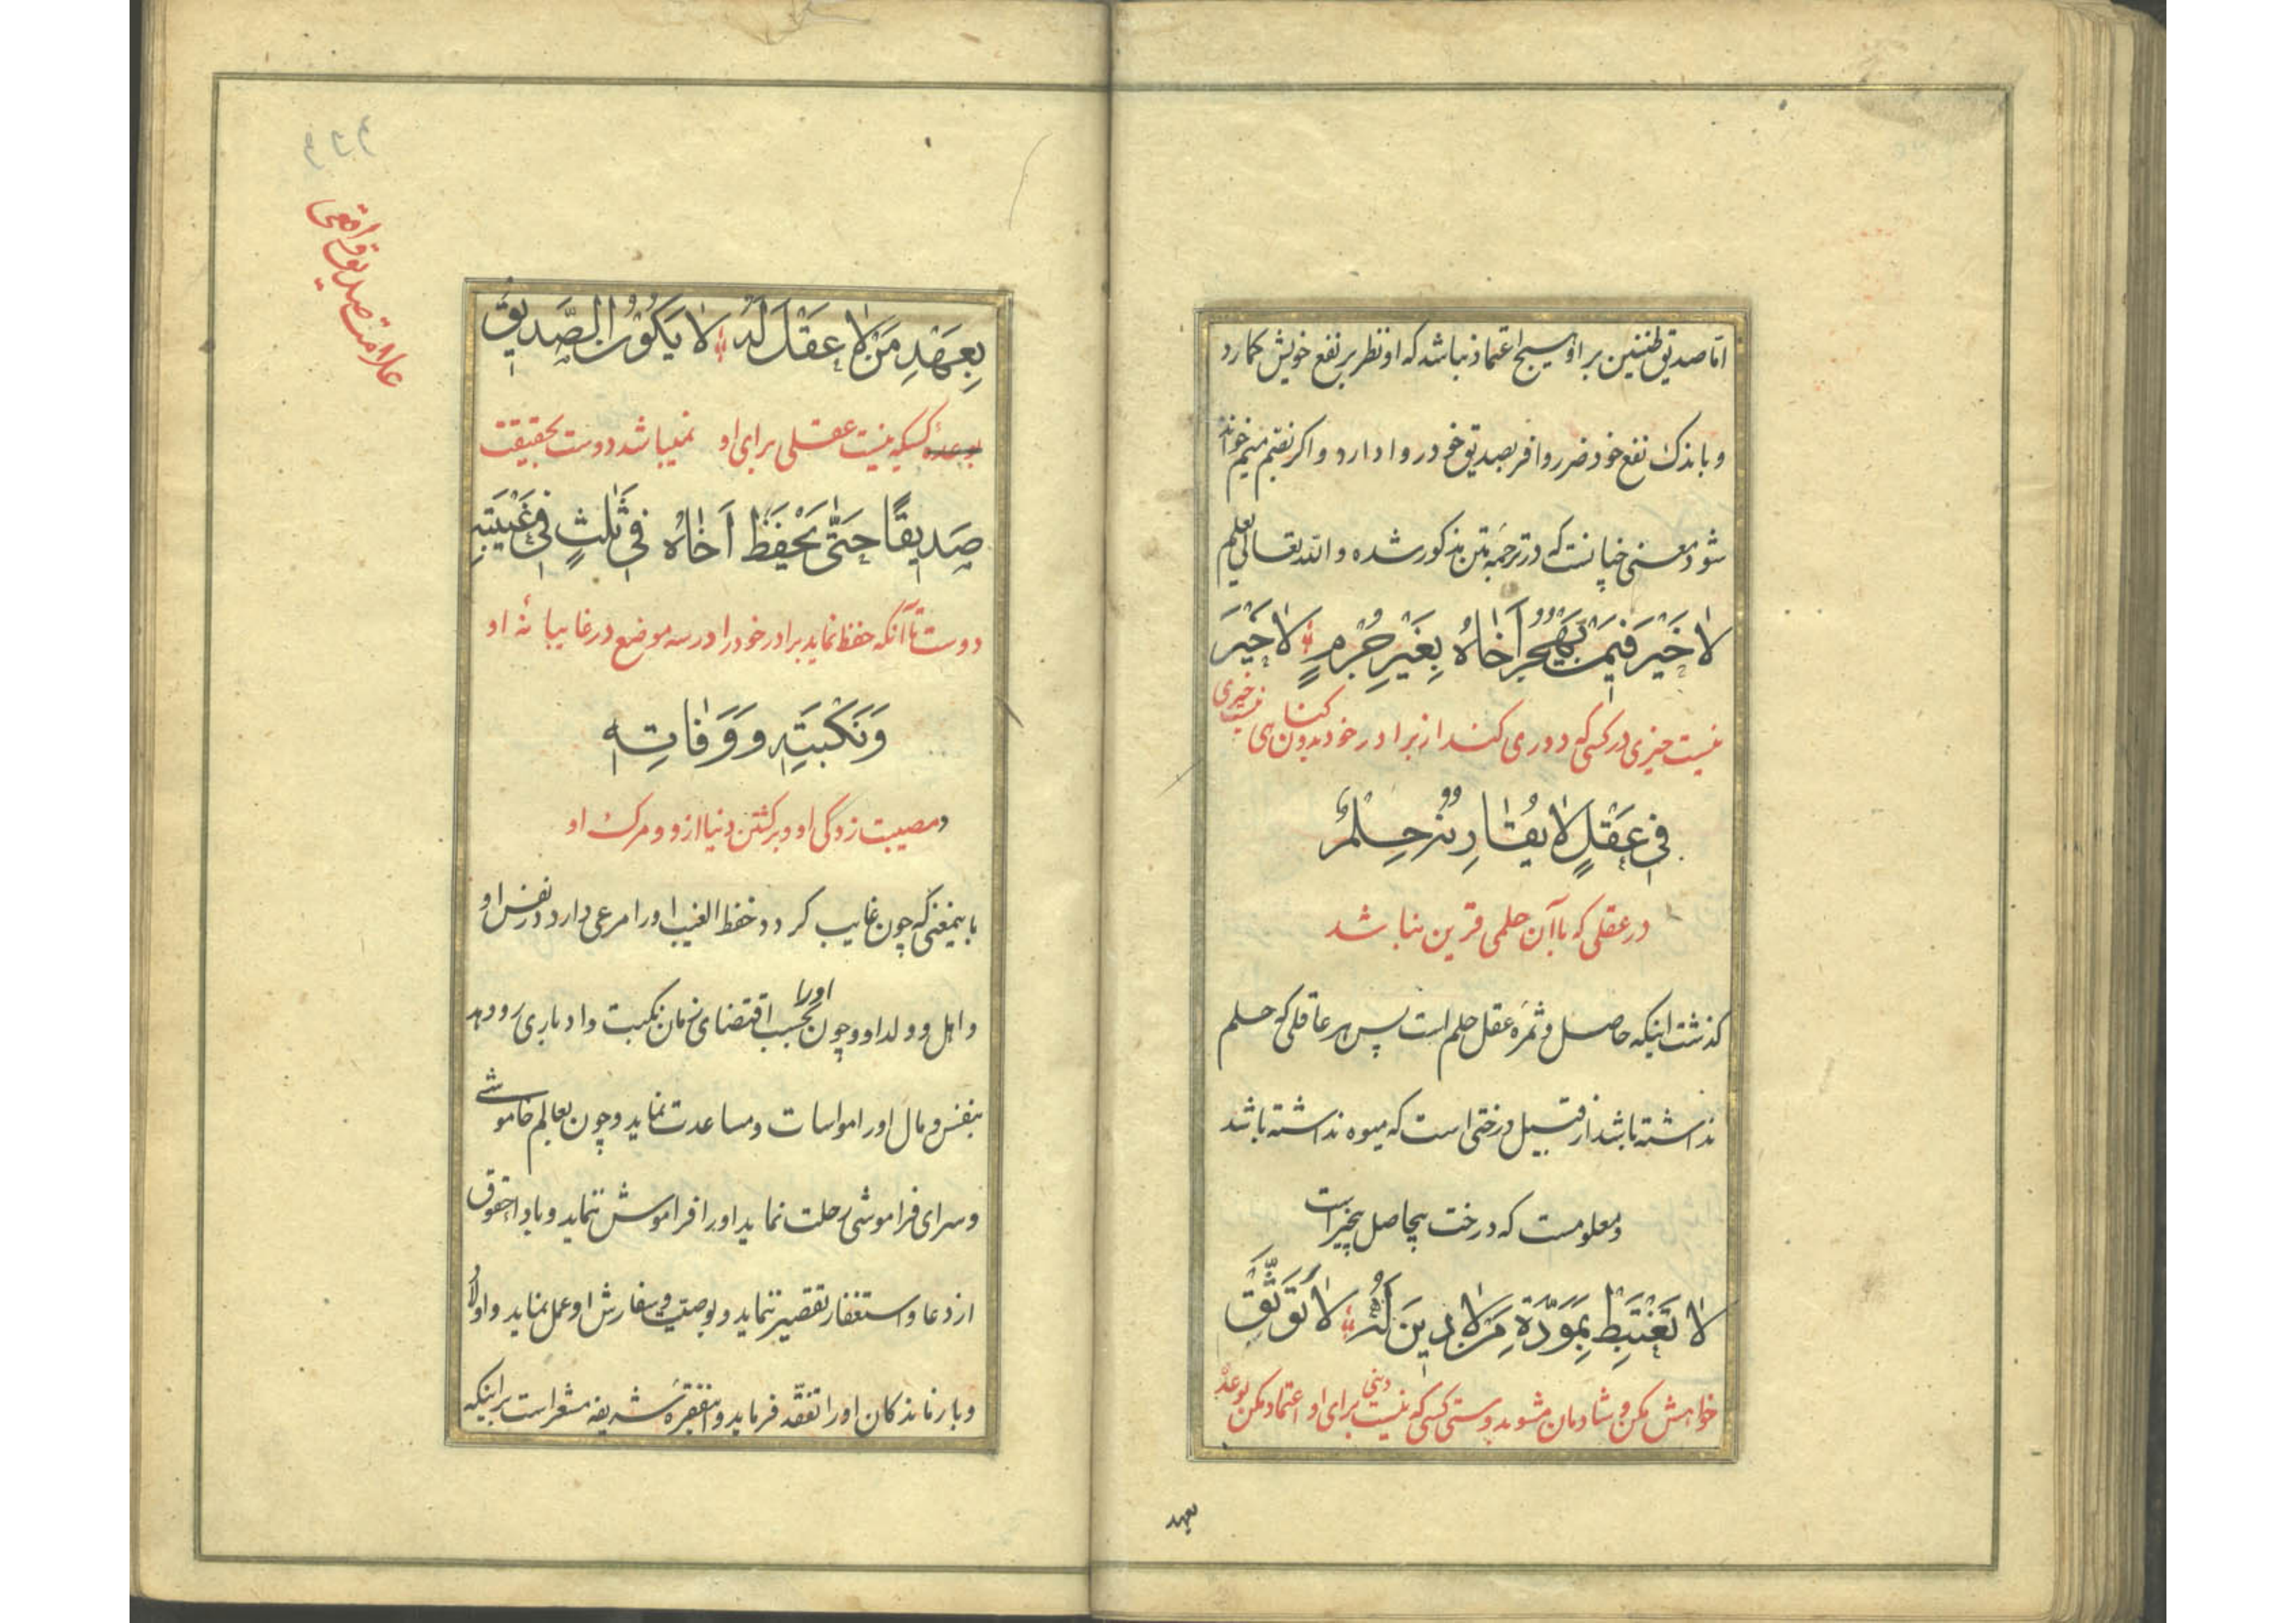 امّا صدیق ظنین بر او هیچ اعتماد نباشد که او نظر بر نفع خویش کمارد
و باندک نفع خود ضرر وافر بصدیق خود روا دارد و اکر بفتح میم خوانده
شود معنی چنانست که در ترجمه متن مذکور شده والله تعالی یعلم
لا خَیْرَ فیمَنْ یَهْجُرُ اَخاهُ بِغَیْرِ جُرْمٍ لا خَیْرَ
نیست خیری در کسی که دوری کند از برادر خود بدون کناهی نیست خیری
فی عَقْلٍ لا یُقارِنُهُ حِلْمٌ
در عقلی که باآن حلمی قرین نباشد
کذشت اینکه حاصل و ثمره عقل حلم است پس هر عاقلی که حلم
نداشته باشد از قبیل درختی است که میوه نداشته باشد
و معلومست که درخت بیحاصل بیخیر است
لا تَغْتَبِطْ بِمَوَدَّةِ مَنْ لا دینَ لَهُ لا تَوَثَّقْ
خواهش مکن و شادمان مشو بدوستی کسی که نیست دینی برای او اعتماد مکن بوعده
بعهد
علامت صدیق واقعی
بِعَهْدِ مَنْ لا عَقْلَ لَهُ لا یَکُونُ الصَّدیقُ
بوعدهٔ کسیکه نیست عقلی برای او نمیباشد دوست بحقیقت
صَدیقًا حَتّٰی یَحْفَظَ اَخاهُ فی ثَلٰثٍ فی غَیْبَتِهِ
دوست تاآنکه حفظ نماید برادر خود را در سه موضع در غایبانهٔ او
وَنَکْبَتِهِ وَوَفاتِهِ
و مصیبت زدکی او و برکشتن دنیا ازو و مرک او
باینمعنی که چون غایب کردد حفظ الغیب او را مرعی دارد در نفس او
و اهل و ولد او و چون او را بحسب اقتضای زمان نکبت و ادباری رو دهد
بنفس و مال او را مواسات و مساعدت نماید و چون بعالم خاموشی
و سرای فراموشی رحلت نماید او را فراموش ننماید و باداء حقوق
از دعا و استغفار تقصیر ننماید و بوصیت و سفارش او عمل نماید و اولاد
و بازماندکان او را تفقّد فرماید و اینفقرهٔ شریفه مشعر است بر اینکه